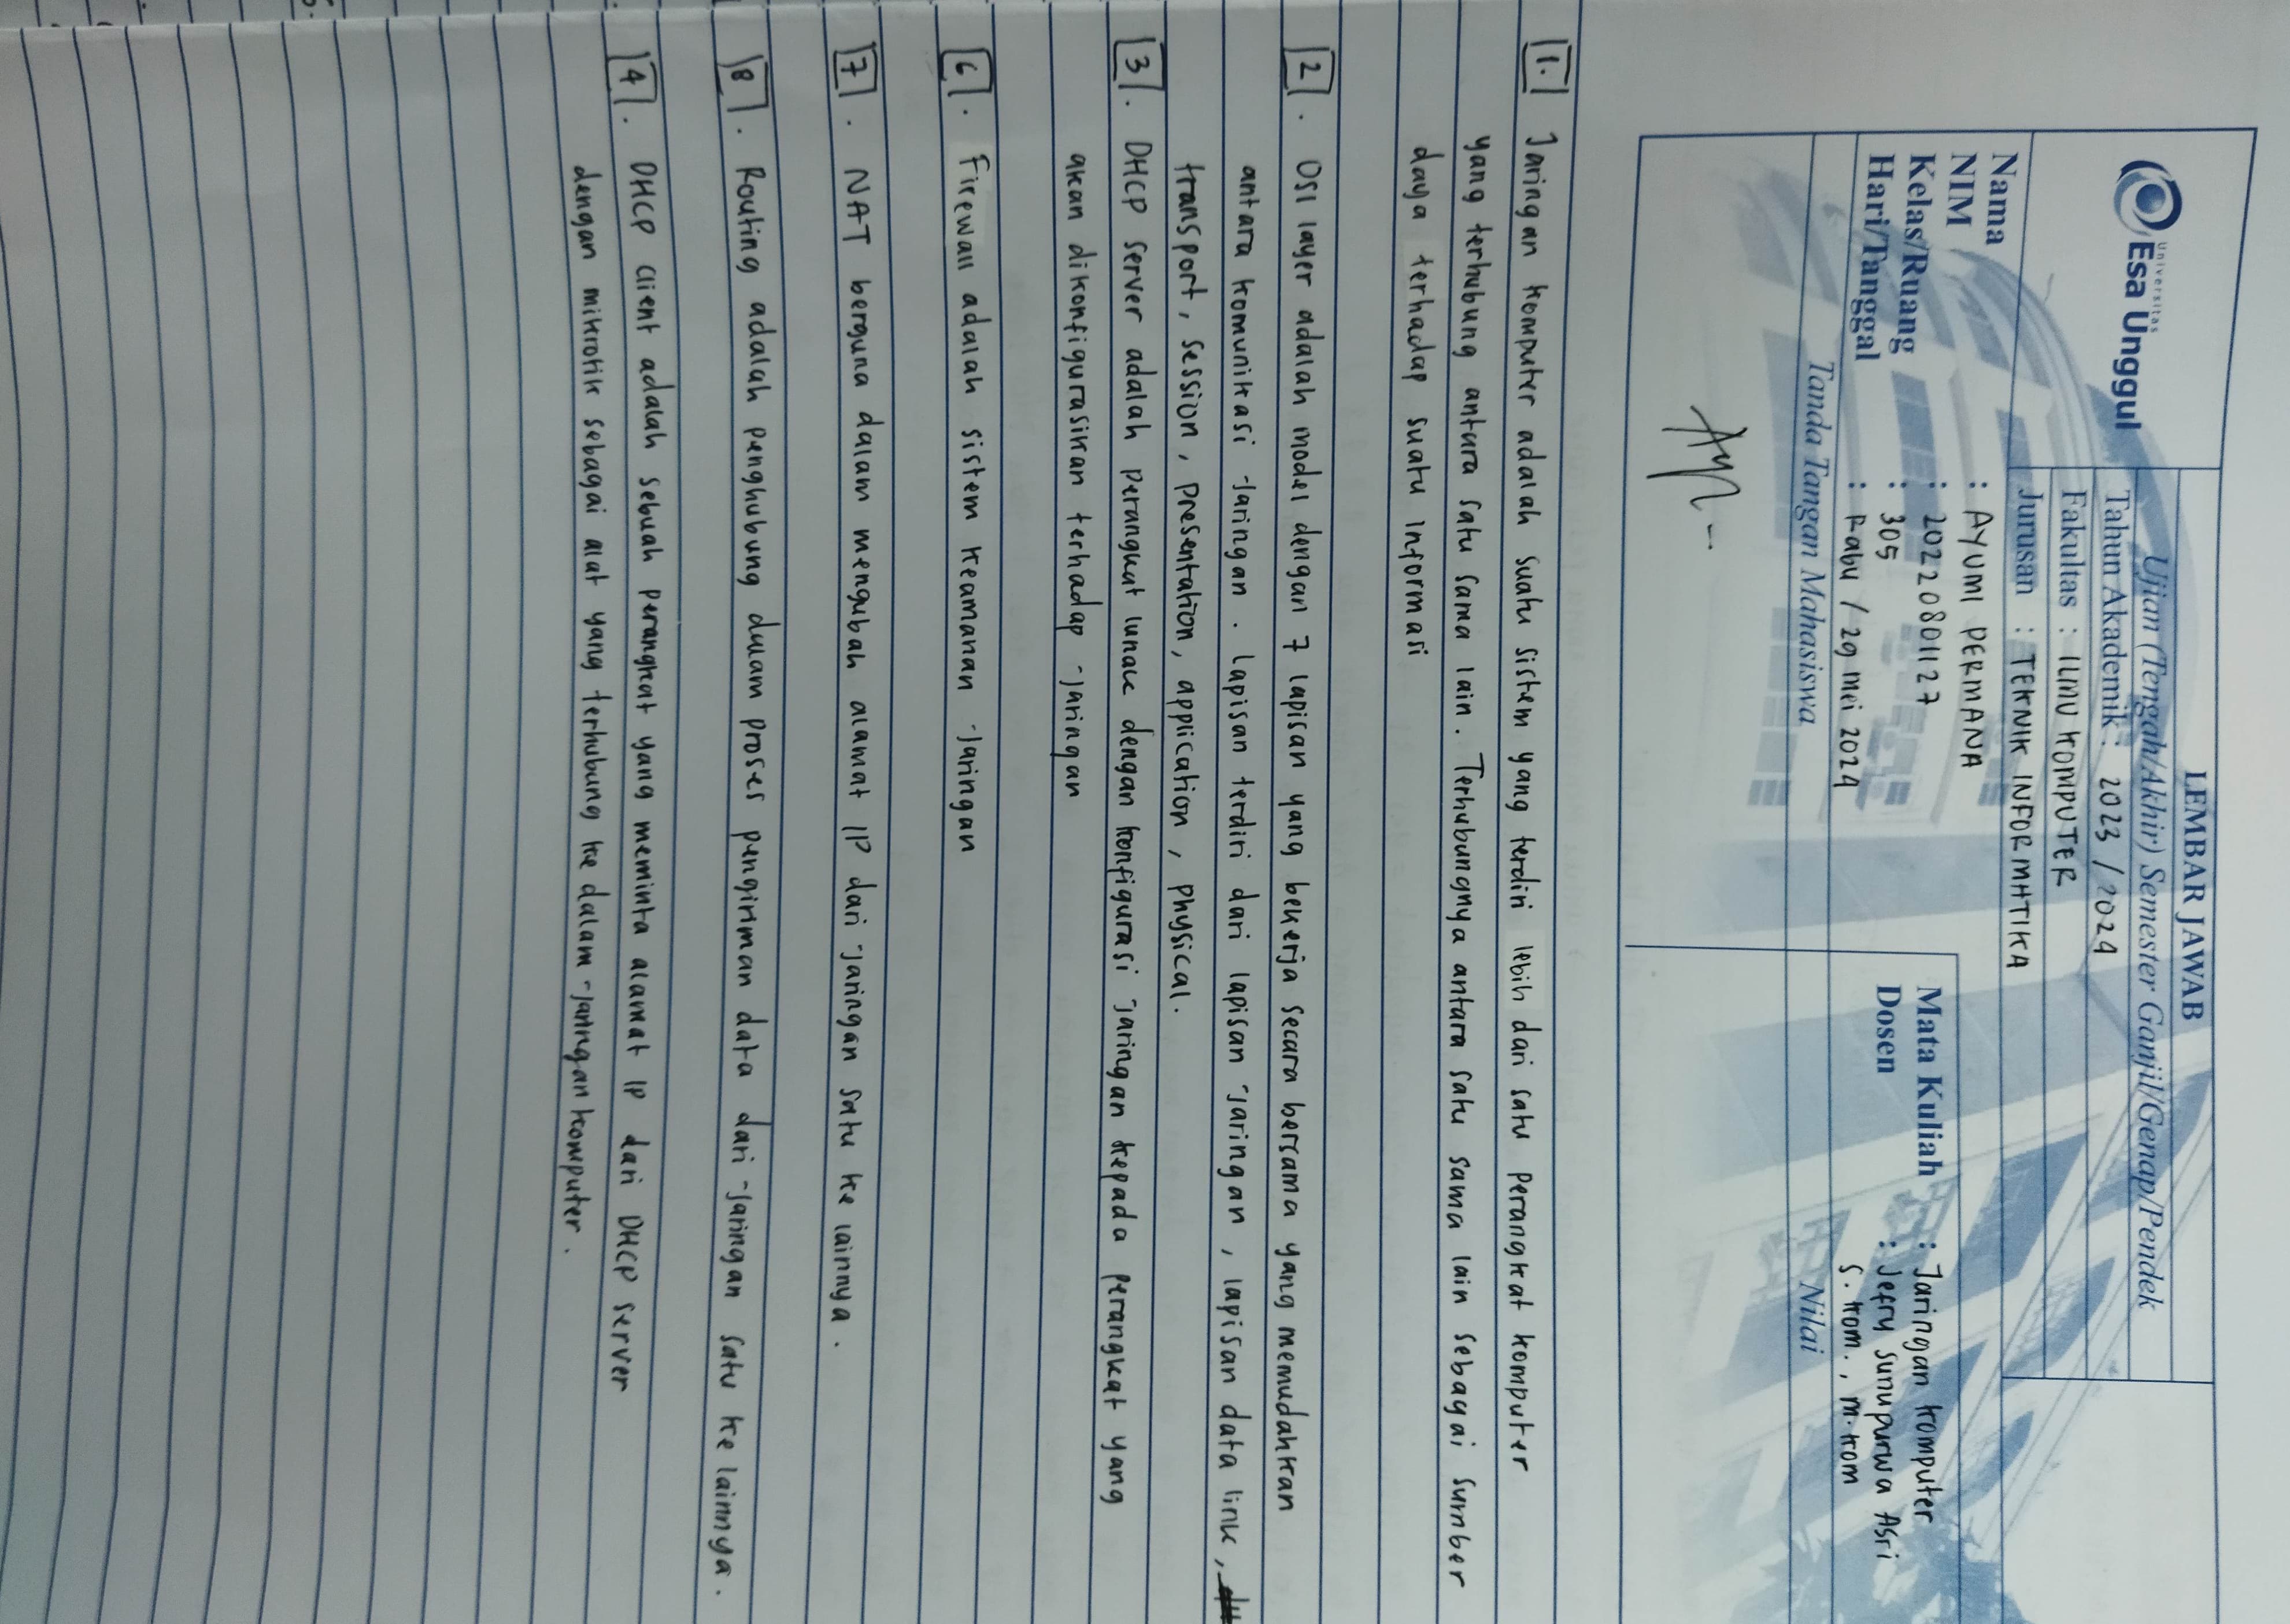 LEMBAR JAWAB
Universitas
Esa Unggul
Ujian (Tengah/Akhir) Semester Ganjil/Genap/Pendek
Tahun Akademik : 2023 / 2024
Fakultas : ILMU KOMPUTER
Jurusan : TEKNIK INFORMATIKA
Nama : AYUMI PERMANA
NIM : 20220801127
Kelas/Ruang : 305
Hari/Tanggal : Rabu / 29 mei 2024
Mata Kuliah : Jaringan komputer
Dosen : Jefry Sunupurwa Asri
S. kom., M.kom
Tanda Tangan Mahasiswa
Nilai
1. Jaringan komputer adalah suatu sistem yang terdiri lebih dari satu perangkat komputer
yang terhubung antara satu sama lain. Terhubungnya antara satu sama lain sebagai sumber
daya terhadap suatu informasi
2. OSI layer adalah model dengan 7 lapisan yang bekerja secara bersama yang memudahkan
antara komunikasi jaringan. Lapisan terdiri dari lapisan jaringan, lapisan data link,
transport, session, presentation, application, physical.
3. DHCP server adalah perangkat lunak dengan konfigurasi jaringan kepada perangkat yang
akan dikonfigurasikan terhadap jaringan
6. Firewall adalah sistem keamanan jaringan
7. NAT berguna dalam mengubah alamat IP dari jaringan satu ke lainnya.
8. Routing adalah penghubung dalam proses pengiriman data dari jaringan satu ke lainnya.
4. DHCP client adalah sebuah perangkat yang meminta alamat IP dari DHCP server
dengan mikrotik sebagai alat yang terhubung ke dalam jaringan komputer.